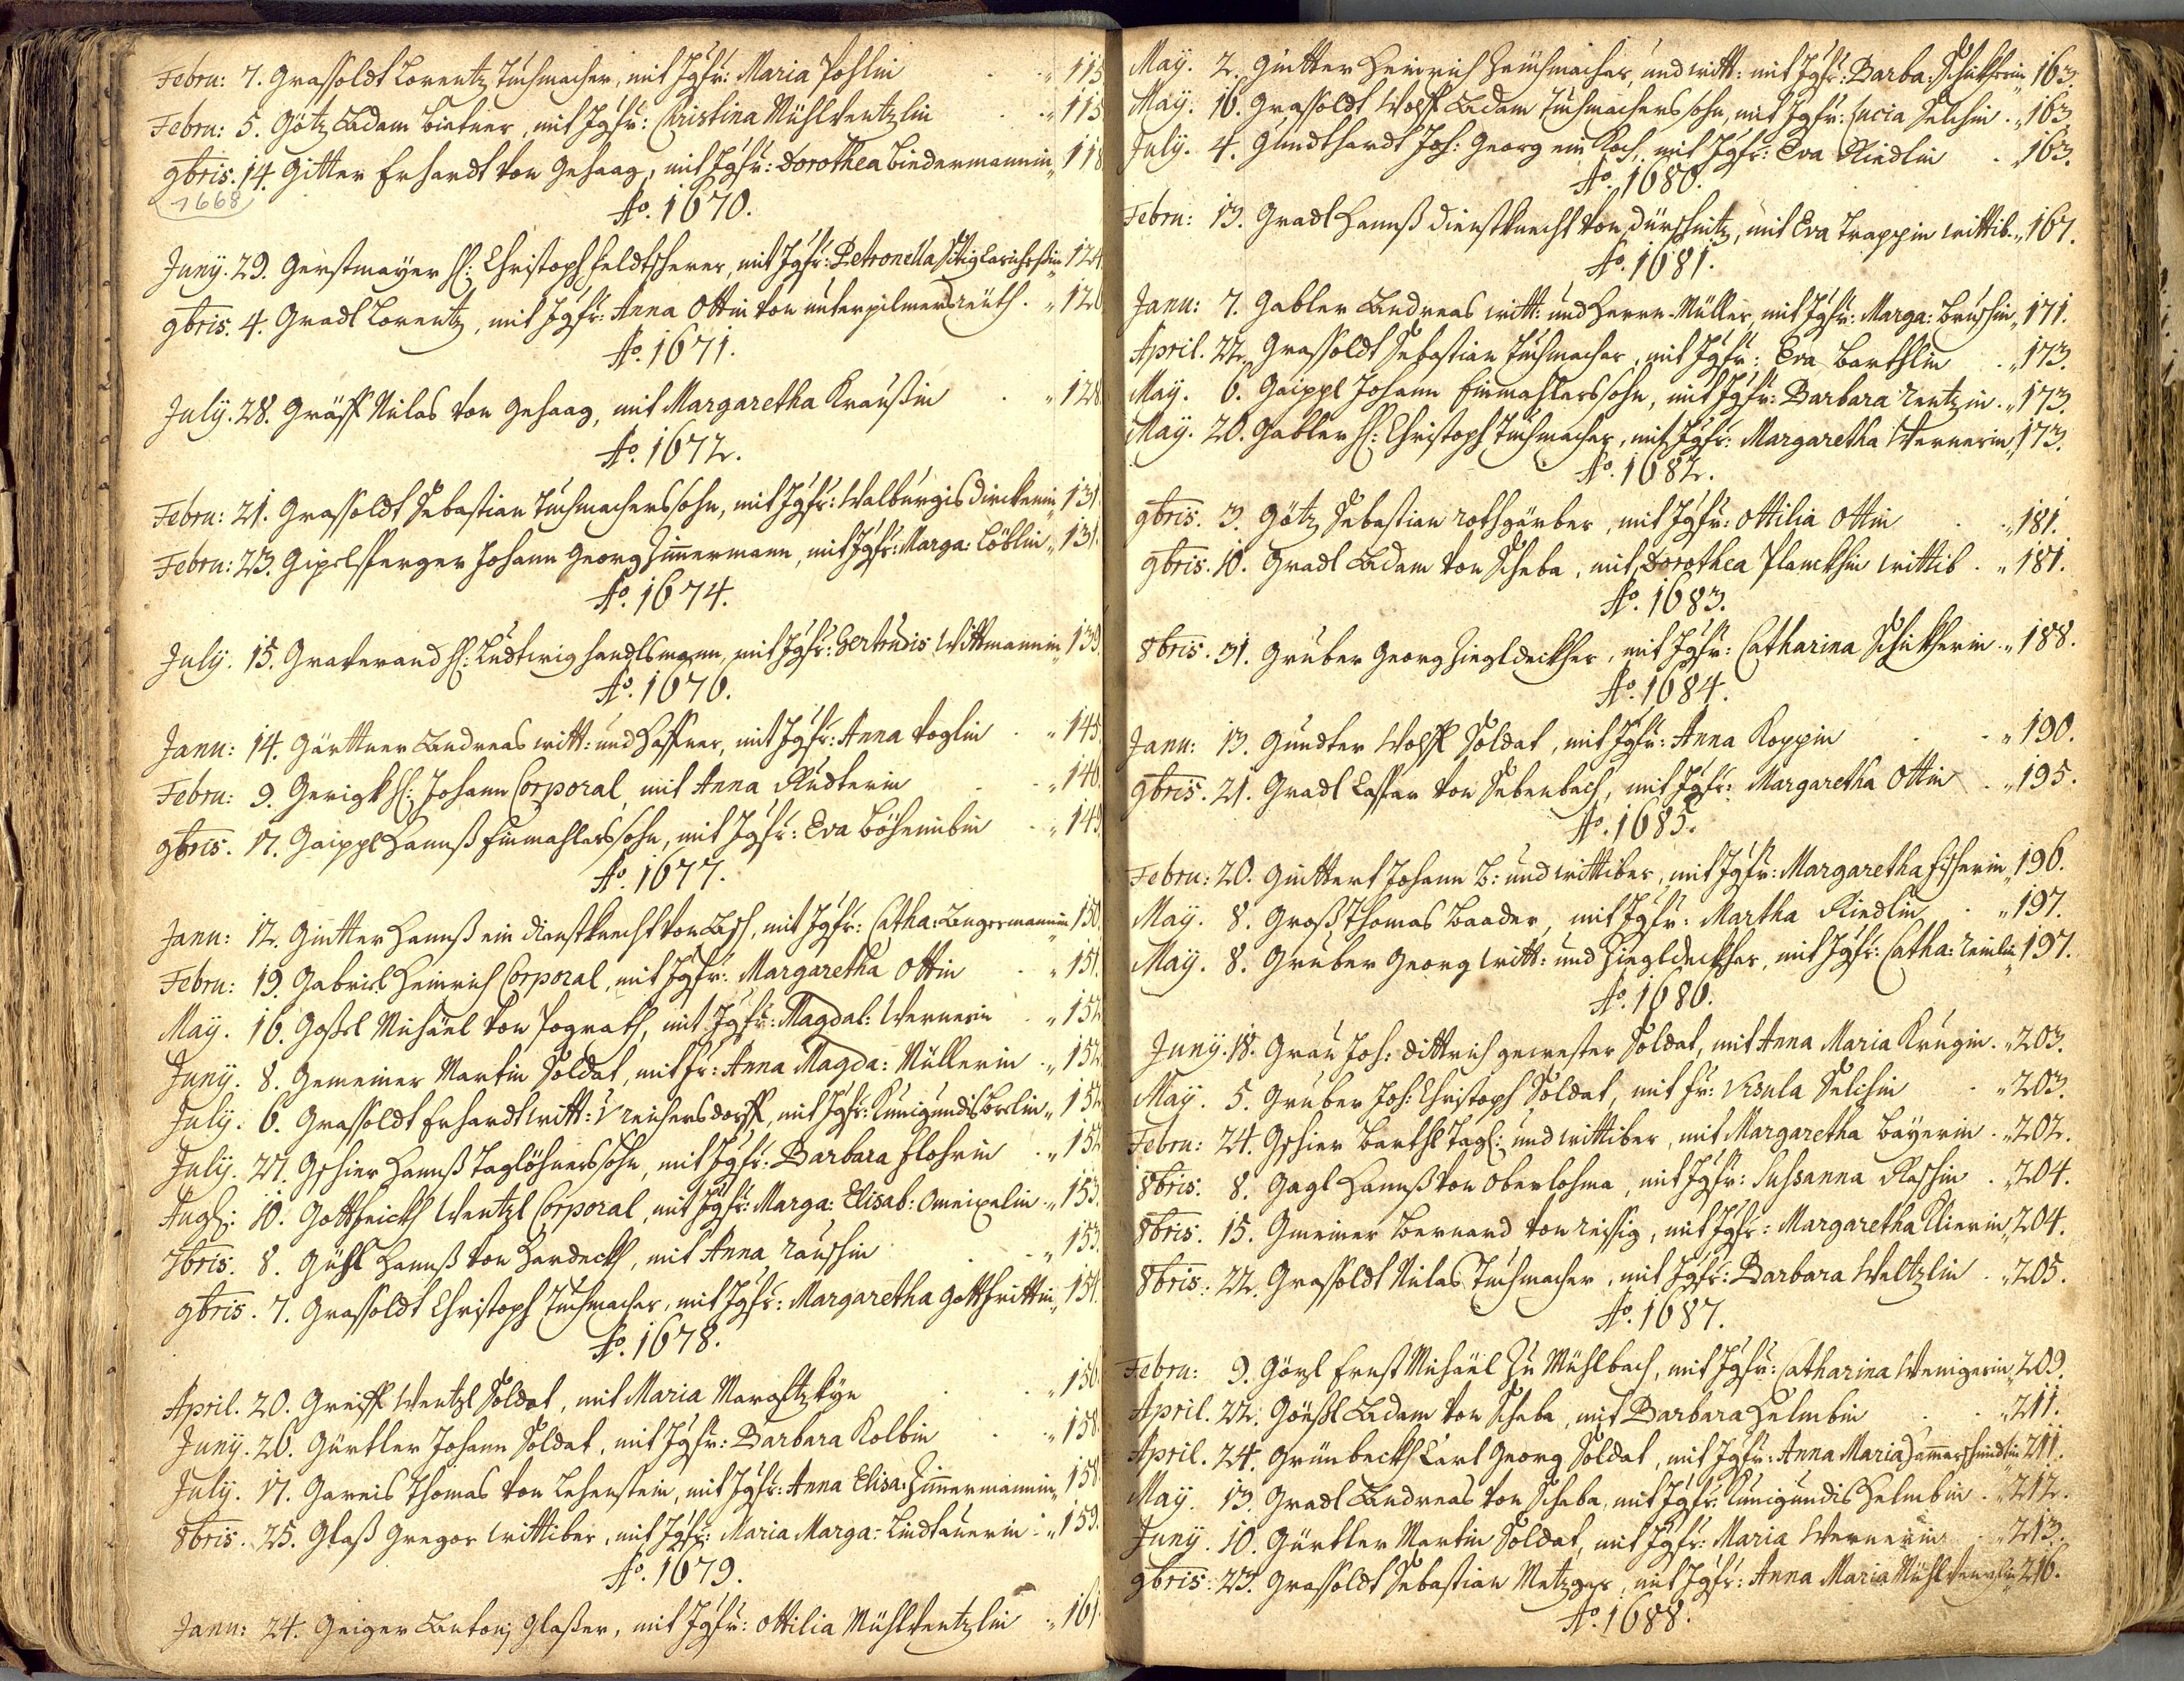 Febru: 7. Grassoldt Lorentz Tuchmacher, mit Jgfr: Maria Pohlin „ 115
Febru: 5. Götz Adam Bietner, mit Jgfr: Christina Mühlventzlin „ 115
9bris. 14. Gitter Erhardt von Gehaag, mit Jgfr: Dorothea Biedermannin „ 118
1668
Ao. 1670.
Juny. 29. Gerstmayer H: Christoph Feldtscherer, mit Jgfr: Petronella „ 124.
9bris. 4. Gradl Lorentz, mit Jgfr: Anna Ottin von unterpilmersreuth. „ 126
Ao. 1671.
July. 28. Gräff Niklas von Gehaag, mit Margaretha Kraußin „ 128
Ao. 1672.
Febru: 21. Grassoldt Sebastian Tuchmacherssohn, mit Jgfr: Walburgis „ 131.
Febru: 23. Gipelsperger Johann Georg Zimmermann, mit Jgfr: Marga: Löblin „ 131.
Ao. 1674.
July. 15. Graverand H: Ludtwig handlsmann, mit Jgfr: Gertrudis Wittmannin „ 139.
Ao. 1676.
Janu: 14. Gärttner Andreas witt: und Haffner, mit Jgfr: Anna Voglin „ 145.
Febru: 9. Gerigk H: Johann Corporal, mit Anna Rudterin „ 146.
9bris. 17. Gaippl Hannß Einmahlerssohn, mit Jgfr: Eva Böhembin „ 149
Ao. 1677.
Janu: 12. Gintter Hannß ein dienstknecht von Asch, mit Jgfr: Catha: Angermannin 150.
Febru: 19. Gabriel Heinrich Corporal, mit Jgfr: Margaretha Ottin „ 151.
May. 16. Goßel Michael von Pograth, mit Jgfr: Magdal: Wernerin „ 152
Juny. 8. Gemeiner Martin Soldat, mit fr: Anna Magda: Müllerin „ 152
July. 6. Grassoldt Erhardt witt: v reichersdorff, mit Jgfr: Kunigundis „ 152
July. 27. Gschier Hannß Taglöhnerssohn, mit Jgfr: Barbara Flohrin „ 152
Aug: 10. Gottfridt Wentzl Corporal, mit Jgfr: Marga: Elisab: Omeixelin „ 153.
7bris. 8. Gühl Hannß von Hardeckh, mit Anna Rauschin „ 153.
9bris. 7. Grassoldt Christoph Tuchmacher, mit Jgfr: Margaretha Gottfrittin „ 154.
Ao. 1678.
April. 20. Greiff Wentzl Soldat, mit Maria „ 156.
Juny. 26. Gürtler Johann Soldat, mit Jgfr: Barbara Kolbin „ 158.
July. 17. Gareis Thomas von Lehenstein, mit Jgfr: Anna Elisa: Zimmermannin „ 158
8bris. 25. Glaß Gregor wittiber, mit Jgfr: Maria Marga: Lindtauerin „ 159.
Ao. 1679.
Janu: 24. Geiger Antonj Glaßer, mit Jgfr: Ottilia Mühlventzlin „ 161.
May. 2. Gintter Heinrich Zeuchmacher, und witt: mit Jgfr: Barba: Schickherin „ 163.
May. 16. Grassoldt Wolff Adam Tuchmacherssohn, mit Jgfr: Lucia Selchin „ 163.
July. 4. Gundthardt Joh: Georg ein Koch, mit Jgfr: Eva Riedlin „ 163.
Ao. 1680.
Febru: 13. Gradl Hannß dienstknecht von dürschnitz, mit Eva Trappin wittib. „ 167.
Ao. 1681.
Janu: 7. Gabler Andreas witt: und Herrn-Müller, mit Jgfr: Marga: Bruschin „ 171.
April. 22. Grassoldt Sebastian Tuchmacher, mit Jgfr: Eva Barthlin „ 173.
May. 6. Gaippl Johann Einmahlerssohn, mit Jgfr: Barbara Rentzin „ 173.
May. 20. Gabler H: Christoph Tuchmacher, mit Jgfr: Margaretha Wernerin „ 173.
Ao. 1682.
9bris. 3. Götz Sebastian rothgärber, mit Jgfr: Ottilia Ottin „ 181.
9bris. 10. Gradl Adam von Scheba, mit Dorothea Planckhin wittib „ 181.
Ao. 1683.
8bris. 31. Gruber Georg Ziegldeckher, mit Jgfr: Catharina Schickherin „ 188.
Ao. 1684.
Janu: 13. Gundter Wolff Soldat, mit Jgfr: Anna Koppin „ 190.
9bris. 21. Gradl Casspar von Sebenbach, mit Jgfr: Margaretha Ottin „ 195.
Ao. 1685.
Febru: 20. Guttert Johann B: und wittiber, mit Jgfr: Margaretha Fischerin „ 196.
May. 8. Groß Thomas Baader, mit Jgfr: Martha Riedlin „ 197.
May. 8. Gruber Georg witt: und Ziegldeckher, mit Jgfr: Catha: „ 197.
Ao. 1686.
Juny. 18. Grau Joh: Dittrich gewester Soldat, mit Anna Maria Krugin „ 203.
May. 5. Gruber Joh: Christoph Soldat, mit fr: Ursula Selchin „ 203.
Febru: 24. Gschier Barthl Tagl: und wittiber, mit Margaretha Bayerin „ 202.
8bris. 8. Gagl Hannß von Oberlohma, mit Jgfr: Sussanna Raschin „ 204.
8bris. 15. Gmeiner Bernard von reissig, mit Jgfr: Margaretha Klierin „ 204.
8bris. 22. Grassoldt Niklas Tuchmacher, mit Jgfr: Barbara Weltzlin „ 205.
Ao. 1687.
Febru: 9. Görl Ernst Michäel zu Mühlbach, mit Jgfr: Catharina Wenigerin „ 209.
April. 22. Göeßl Adam von Scheba, mit Barbara Helmbin „ 211.
April. 24. Grünbeckh Carl Georg Soldat, mit Jgfr: Anna Maria Hammerschmidtin „ 211.
May. 13. Gradl Andreas von Scheba, mit Jgfr: Kunigundis Helmbin „ 212.
Juny. 10. Gürtler Martin Soldat, mit Jgfr: Maria Wernerin „ 213.
9bris: 23. Grassoldt Sebastian Metzger, mit Jgfr: Anna Maria Mühlventzlin „ 216.
Ao. 1688.